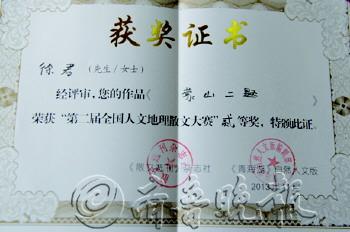 获奖证书
徐君 (先生/女士)
经评审，您的作品《 蒙山二题 》
荣获“第二届全国人文地理散文大赛”贰等奖，特颁此证。
《散文选刊》杂志社 《青海湖》自然人文版
2013年
齐鲁晚报